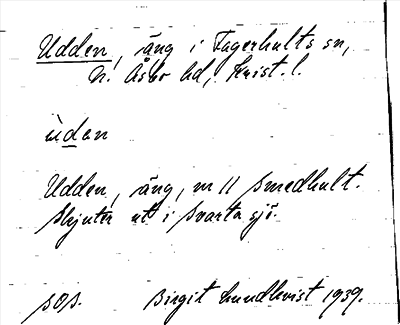 Udden, äng i Fagerhults sn,
N. Åsbo hd, Krist. l.
ùden
Udden, äng, m 11 Smedhult.
Skjuter ut i Svarta sjö.
SOS. Birgit Lundkvist 1939.